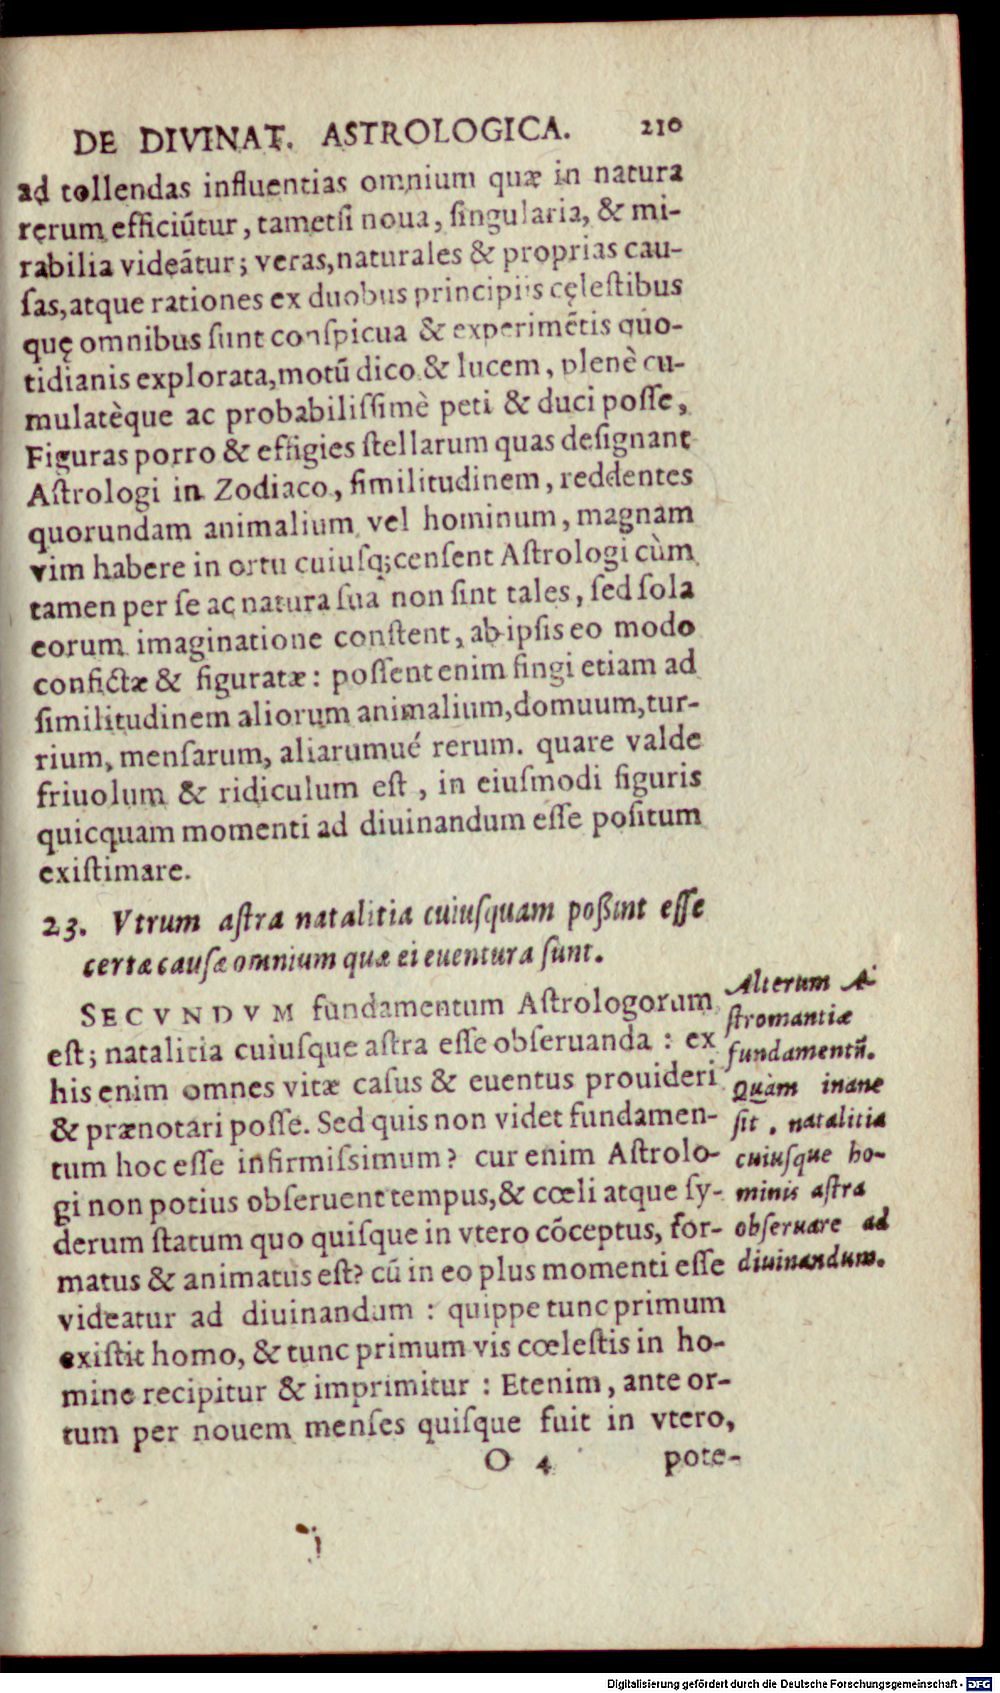 DE DIVINAT. ASTROLOGICA. 210
ad tollendas influentias omnium quæ in natura
rerum efficiũtur, tametsi noua, singularia, & mi-
rabilia videãtur; veras, naturales & proprias cau-
sas, atque rationes ex duobus principiis cęlestibus
quę omnibus sunt conspicua & experimẽtis quo-
tidianis explorata, motũ dico & lucem, plenè cu-
mulatèque ac probabilissimè peti & duci posse,
Figuras porro & effigies stellarum quas designant
Astrologi in Zodiaco, similitudinem, reddentes
quorundam animalium vel hominum, magnam
vim habere in ortu cuiusq; censent Astrologi cùm
tamen per se ac natura sua non sint tales, sed sola
eorum imaginatione constent, ab ipsis eo modo
confictæ & figuratæ: possent enim fingi etiam ad
similitudinem aliorum animalium, domuum, tur-
rium, mensarum, aliarumué rerum. quare valde
friuolum & ridiculum est, in eiusmodi figuris
quicquam momenti ad diuinandum esse positum
existimare.
23. Vtrum astra natalitia cuiusquam poßint esse
certæ causæ omnium quæ ei euentura sunt.
SECVNDVM fundamentum Astrologorum
est; natalitia cuiusque astra esse obseruanda: ex
his enim omnes vitæ casus & euentus prouideri
& prænotari posse. Sed quis non videt fundamen-
tum hoc esse infirmissimum? cur enim Astrolo-
gi non potius obseruent tempus, & cœli atque sy-
derum statum quo quisque in vtero cõceptus, for-
matus & animatus est? cũ in eo plus momenti esse
videatur ad diuinandum: quippe tunc primum
existit homo, & tunc primum vis cœlestis in ho-
mine recipitur & imprimitur: Etenim, ante or-
tum per nouem menses quisque fuit in vtero,
O 4 pote-
Alterum A-
stromantiæ
fundamentũ.
Quàm inane
sit, natalitia
cuiusque ho-
minis astra
obseruare ad
diuinandum.
Digitalisierung gefördert durch die Deutsche Forschungsgemeinschaft - DFG